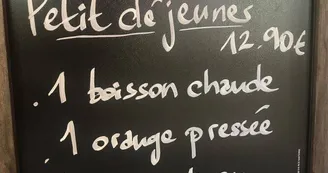 Petit déjeuner
12.90€
. 1 boisson chaude
1 orange pressée